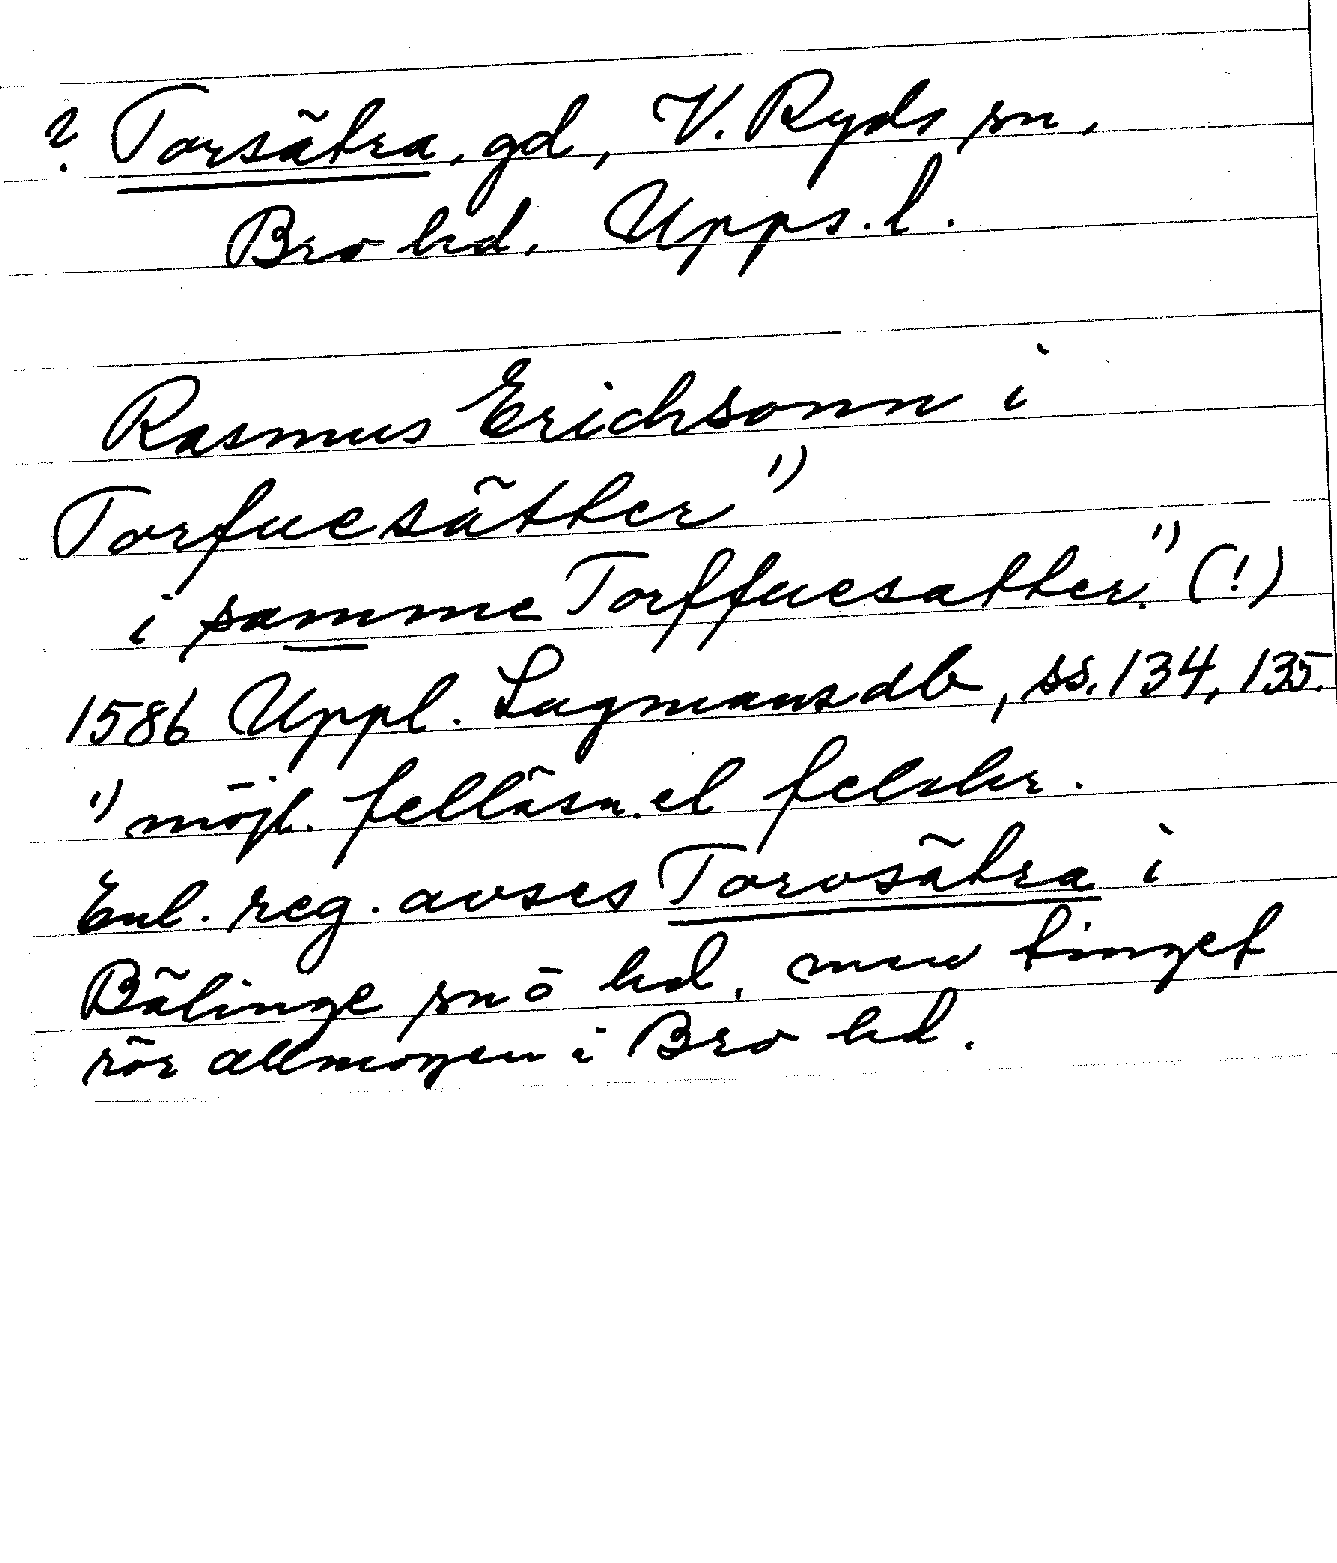 ? Torsätra, gd, V. Ryds sn,
Bro hd. Upps. l.
Rasmus Erichsonn i
Torfuesätter ¹⁾
i samme Torffuesatter." ¹⁾ (!)
1586 Uppl. Lagmansdb, ss. 134, 135.
¹⁾ möjl. felläsn. el felskr.
Enl. reg. avses Torvsätra i
Bälinge sn o hd, men tinget
rör allmogen i Bro hd.